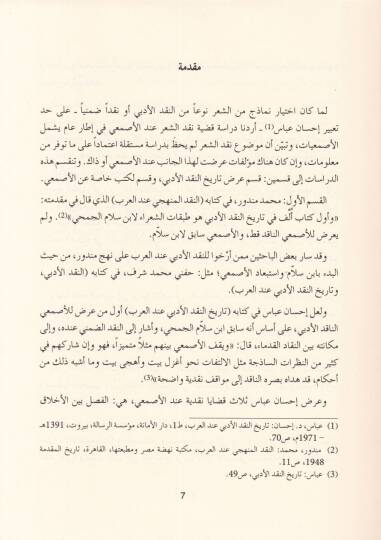 مقدمة
لما كان اختيار نماذج من الشعر نوعاً من النقد الأدبي أو نقداً ضمنياً ـ على حد
تعبير إحسان عباس(1) ـ أردنا دراسة قضية نقد الشعر عند الأصمعي في إطار عام يشمل
الأصمعيات، وتبيّن أن موضوع نقد الشعر لم يحظَ بدراسة مستقلة اعتماداً على ما توفر من
معلومات، وإن كان هناك مؤلفات عرضت لهذا الجانب عند الأصمعي أو ذاك. وتنقسم هذه
الدراسات إلى قسمين: قسم عرض تاريخ النقد الأدبي، وقسم لكتب خاصة عن الأصمعي.
القسم الأول: محمد مندور، في كتابه (النقد المنهجي عند العرب) الذي قال في مقدمته:
«وأول كتاب ألّف في تاريخ النقد الأدبي هو طبقات الشعراء لابن سلام الجمحي»(2). ولم
يعرض للأصمعي الناقد قط، والأصمعي سابق لابن سلاّم.
وقد سار بعض الباحثين ممن أرّخوا للنقد الأدبي عند العرب على نهج مندور، من حيث
البدء بابن سلاّم واستبعاد الأصمعي؛ مثل: حفني محمد شرف، في كتابه (النقد الأدبي،
وتاريخ النقد الأدبي عند العرب).
ولعل إحسان عباس في كتابه (تاريخ النقد الأدبي عند العرب) أول من عرض للأصمعي
الناقد الأدبي، على أساس أنه سابق ابن سلاّم الجمحي، وأشار إلى النقد الضمني عنده، وإلى
مكانته بين النقاد القدماء، قال: «ويقف الأصمعي بينهم مثلاً متميزاً، فهو وإن شاركهم في
كثير من النظرات الساذجة مثل الالتفات نحو أغزل بيت وأهجى بيت وما أشبه ذلك من
أحكام، قد هداه بصره الناقد إلى مواقف نقدية واضحة»(3).
وعرض إحسان عباس ثلاث قضايا نقدية عند الأصمعي، هي: الفصل بين الأخلاق
(1) عباس، د. إحسان: تاريخ النقد الأدبي عند العرب، ط1، دار الأمانة، مؤسسة الرسالة؛ بيروت، 1391هـ
– 1971م، ص70.
(2) مندور، محمد: النقد المنهجي عند العرب، مكتبة نهضة مصر ومطبعتها، القاهرة، تاريخ المقدمة
1948، ص11.
(3) عباس: تاريخ النقد الأدبي، ص49.
7